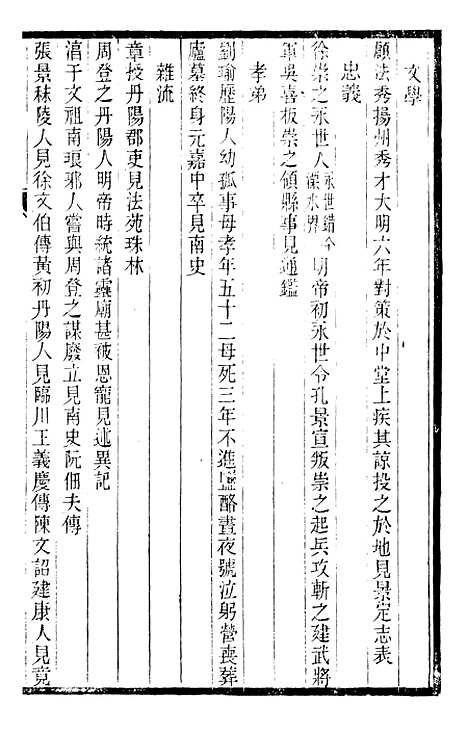 文學
顧法秀揚州秀才大明六年對策於中堂上疾其諒投之於地見景定志表
忠義
徐崇之永世人永世錯今溧水界明帝初永世令孔景宣叛崇之起兵攻斬之建武將
軍吳喜板崇之領縣事見通鑑
孝弟
劉瑜歷陽人幼孤事母孝年五十二母死三年不進鹽酪晝夜號泣躬營喪葬
廬墓終身元嘉中卒見南史
雜流
章授丹陽郡吏見法苑珠林
周登之丹陽人明帝時統諸靈廟甚被恩寵見述異記
湻于文祖南琅邪人嘗與周登之謀廢立見南史阮佃夫傳
張景秣陵人見徐文伯傳黃初丹陽人見臨川王義慶傳陳文詔建康人見竟